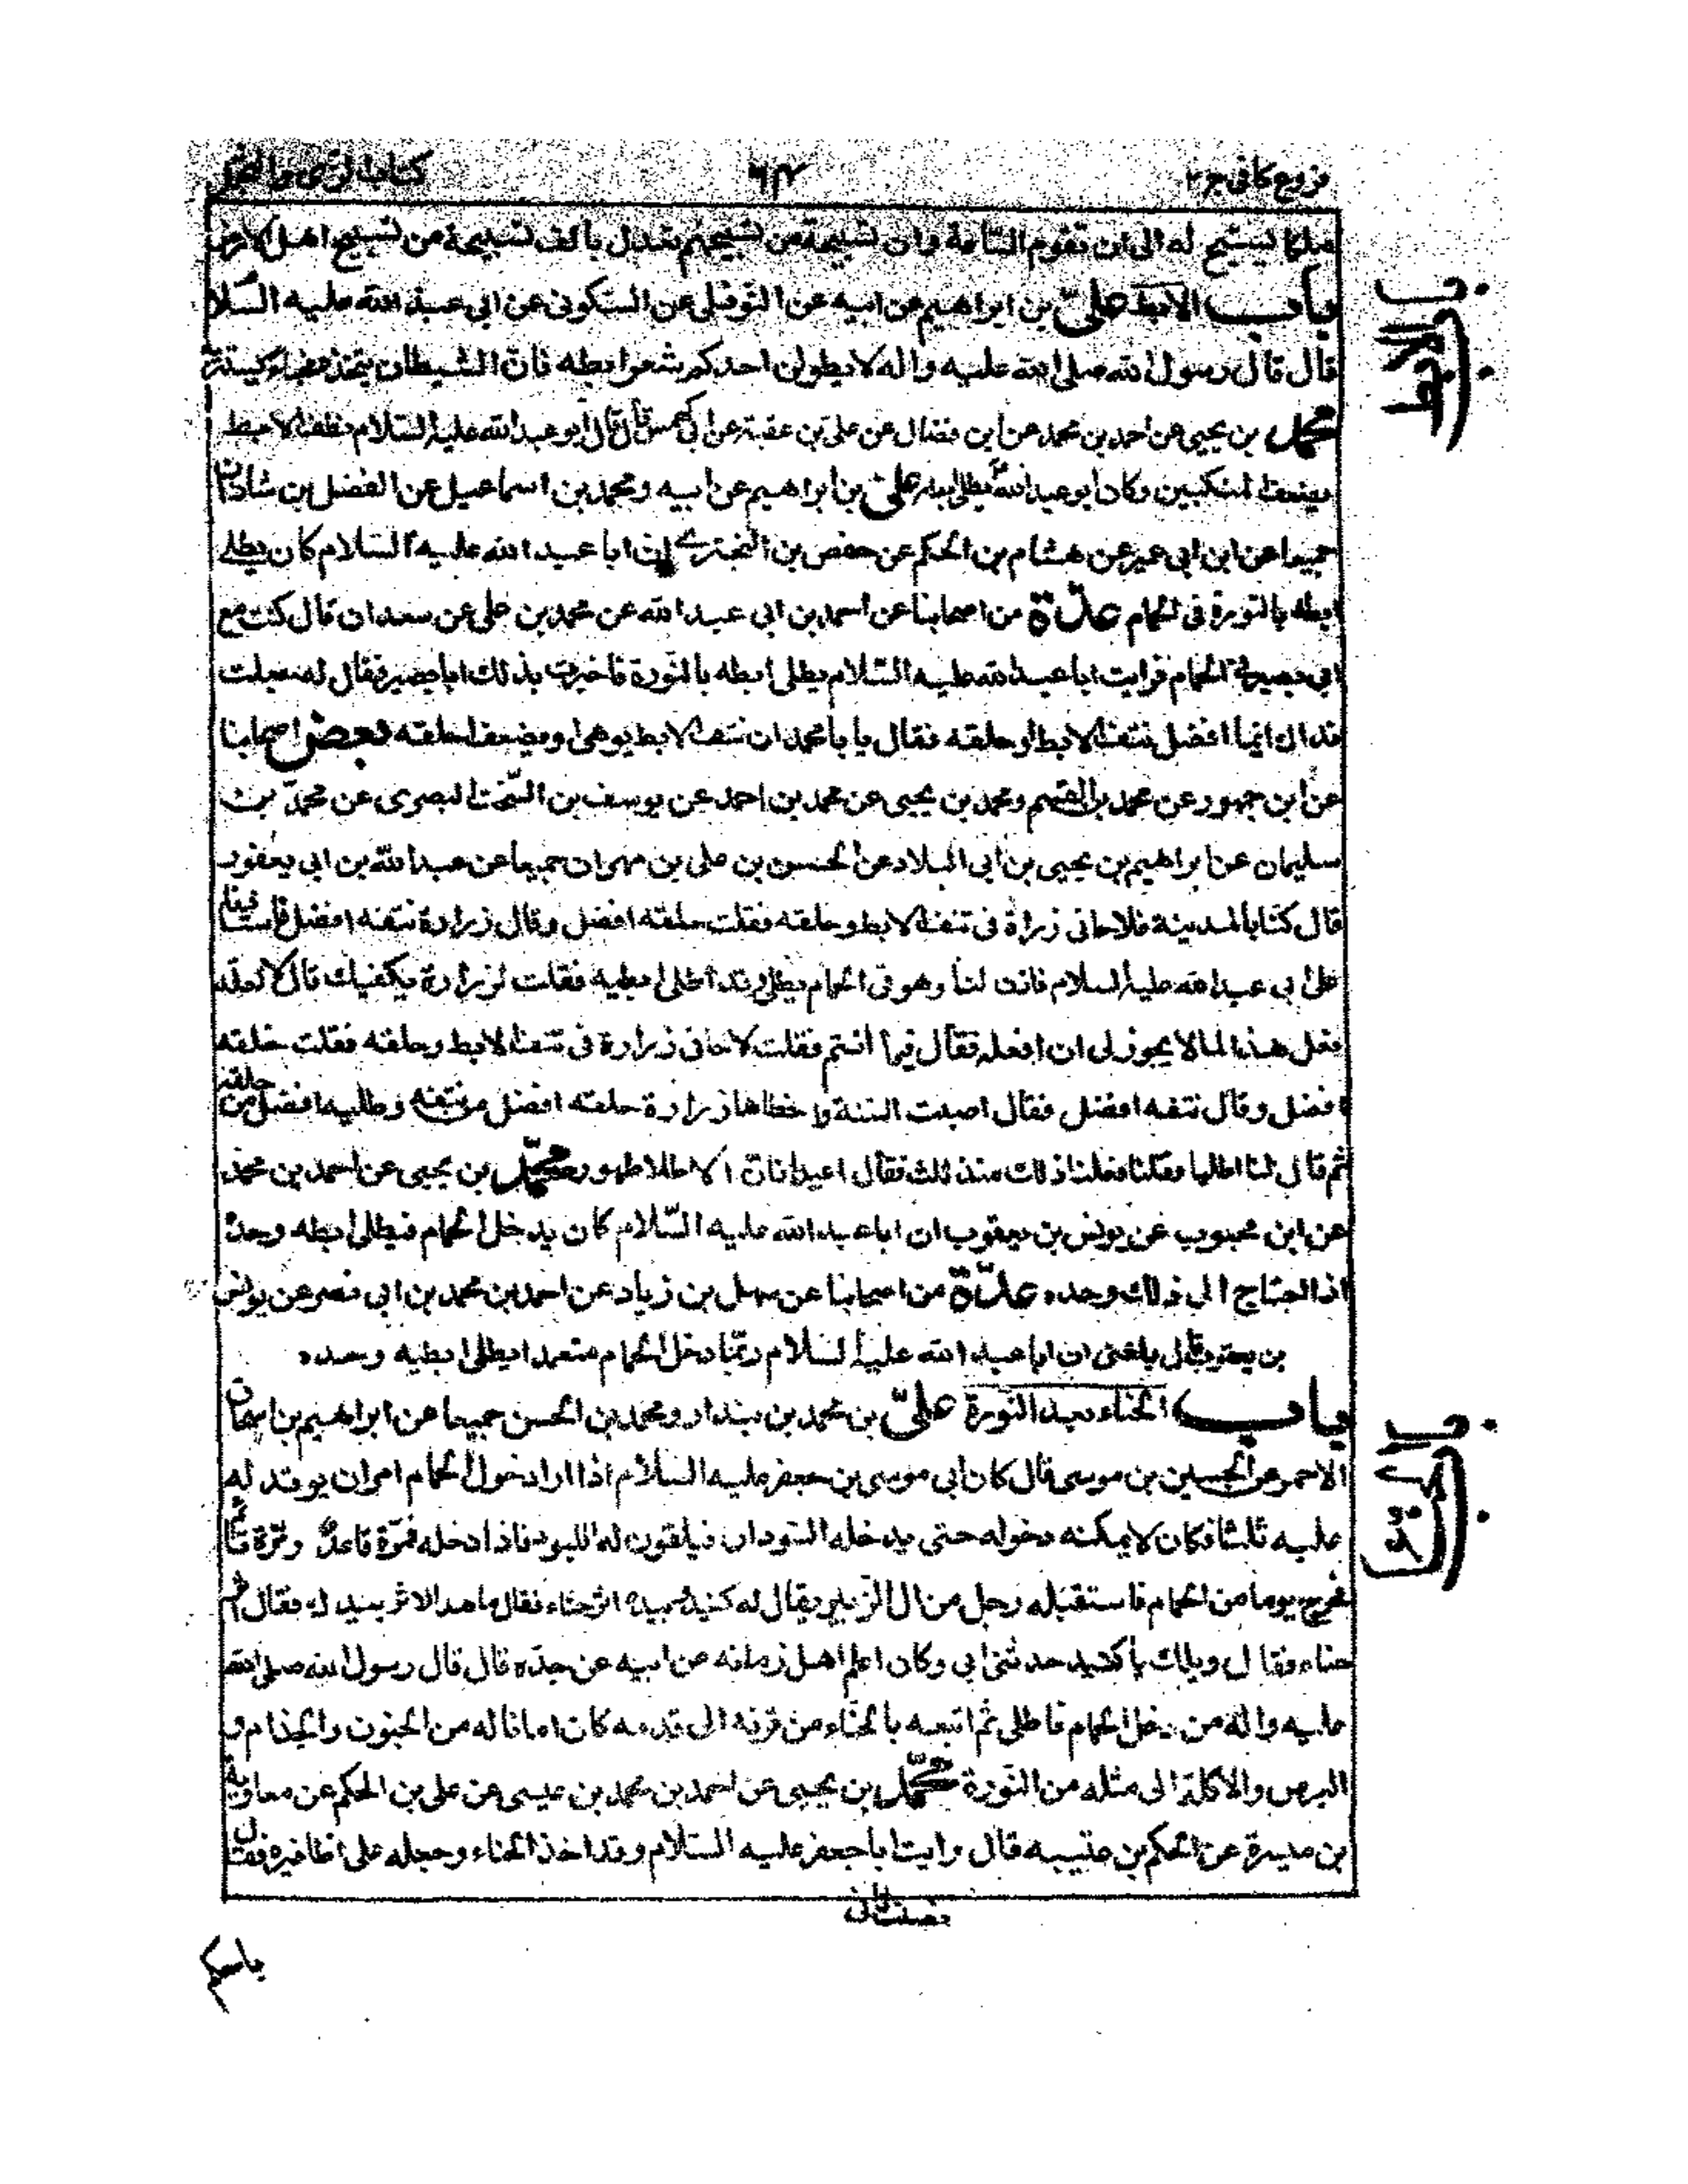 فروع كافى ج۲ ۲۱۴ كتاب الزى والتجمل
ملكا يسبح له الى ان تقوم الساعة وان تسبيحة من تسبيحهم تعدل بالف تسبيحة من تسبيح اهل الارض
باب الابط علىّ بن ابراهيم عن ابيه عن النوفلى عن السكونى عن ابى عبد الله عليه السلا
قال قال رسول الله صلى الله عليه واله لا يطولن احدكم شعر ابطه فان الشيطان يتخذه مخباء يستتر به
محمد بن يحيى عن احمد بن محمد عن ابن فضال عن على بن عقبة عن ابى كهمس قال قال ابو عبد الله عليه السلام نتف الابط
يضعف المنكبين وكان ابو عبد الله يطلى ابطه علىّ بن ابراهيم عن ابيه ومحمد بن اسماعيل عن الفضل بن شاذان
جميعا عن ابن ابى عمير عن هشام بن الحكم عن حفص بن البخترى ان ابا عبد الله عليه السلام كان يطلى
ابطه بالنورة فى الحمام عدّة من اصحابنا عن احمد بن ابى عبد الله عن محمد بن على عن سعدان قال كنت مع
ابى بصير فى الحمام فرايت ابا عبد الله عليه السلام يطلى ابطه بالنورة فاخبرت بذلك ابا بصير فقال له جعلت
فداك ايما افضل نتف الابط او حلقه فقال يا با محمد ان نتف الابط يوهى او يضعف احلقه بعض اصحابنا
عن ابن جمهور عن محمد بن القسم ومحمد بن يحيى عن محمد بن احمد عن يوسف بن السخت البصرى عن محمد بن
سليمان عن ابراهيم بن يحيى بن ابى البلاد عن الحسن بن على بن مهران جميعا عن عبد الله بن ابى يعفور
قال كنا بالمدينة فلاحانى زرارة فى نتف الابط وحلقه فقلت حلقه افضل وقال زرارة نتفه افضل فاستاذنا
على ابى عبد الله عليه السلام فاذن لنا وهو فى الحمام يطلى وقد اطلى ابطيه فقلت لزرارة يكفيك قال لا لعله
فعل هذا لما لا يجوز لى ان افعله فقال فيما انتم فقلت لاحانى زرارة فى نتف الابط وحلقه فقلت حلقه
افضل وقال نتفه افضل فقال اصبت السنة واخطاها زرارة حلقه افضل من نتفه وطليه افضل من حلقه
ثم قال لنا اطليا فقلنا فعلنا ذلك منذ ثلث فقال اعيدا فان الاطلا طهور محمد بن يحيى عن احمد بن محمد
عن ابن محبوب عن يونس بن يعقوب ان ابا عبد الله عليه السلام كان يدخل الحمام فيطلى ابطه وحده
اذا احتاج الى ذلك وحده عدّة من اصحابنا عن سهل بن زياد عن احمد بن محمد بن ابى نصر عن يونس
بن يعقوب قال بلغنى ان ابا عبد الله عليه السلام ربما دخل الحمام متعمدا يطلى ابطيه وحده
باب الحناء بعد النورة علىّ بن محمد بن بندار ومحمد بن الحسن جميعا عن ابراهيم بن اسحاق
الاحمر عن الحسين بن موسى قال كان ابى موسى بن جعفر عليه السلام اذا اراد دخول الحمام امر ان يوقد له
عليه ثلثا فكان لا يمكنه دخوله حتى يدخله السودان فيلقون له اللبود فاذا دخله فمرة قاعد ومرة قائم
فخرج يوما من الحمام فاستقبله رجل من ال الزبير يقال له كنيد وبيده اثر حناء فقال ما هذا الاثر بيدك فقال اثر
حناء فقال ويلك يا كنيد حدثنى ابى وكان اعلم اهل زمانه عن ابيه عن جده قال قال رسول الله صلى الله
عليه واله من دخل الحمام فاطلى ثم اتبعه بالحناء من قرنه الى قدمه كان امانا له من الجنون والجذام و
البرص والاكلة الى مثله من النورة محمد بن يحيى عن احمد بن محمد بن عيسى عن على بن الحكم عن معاوية
بن ميسرة عن الحكم بن عتيبه قال رايت ابا جعفر عليه السلام وقد اخذ الحناء وجعله على اظافيره فقال
يا حكم